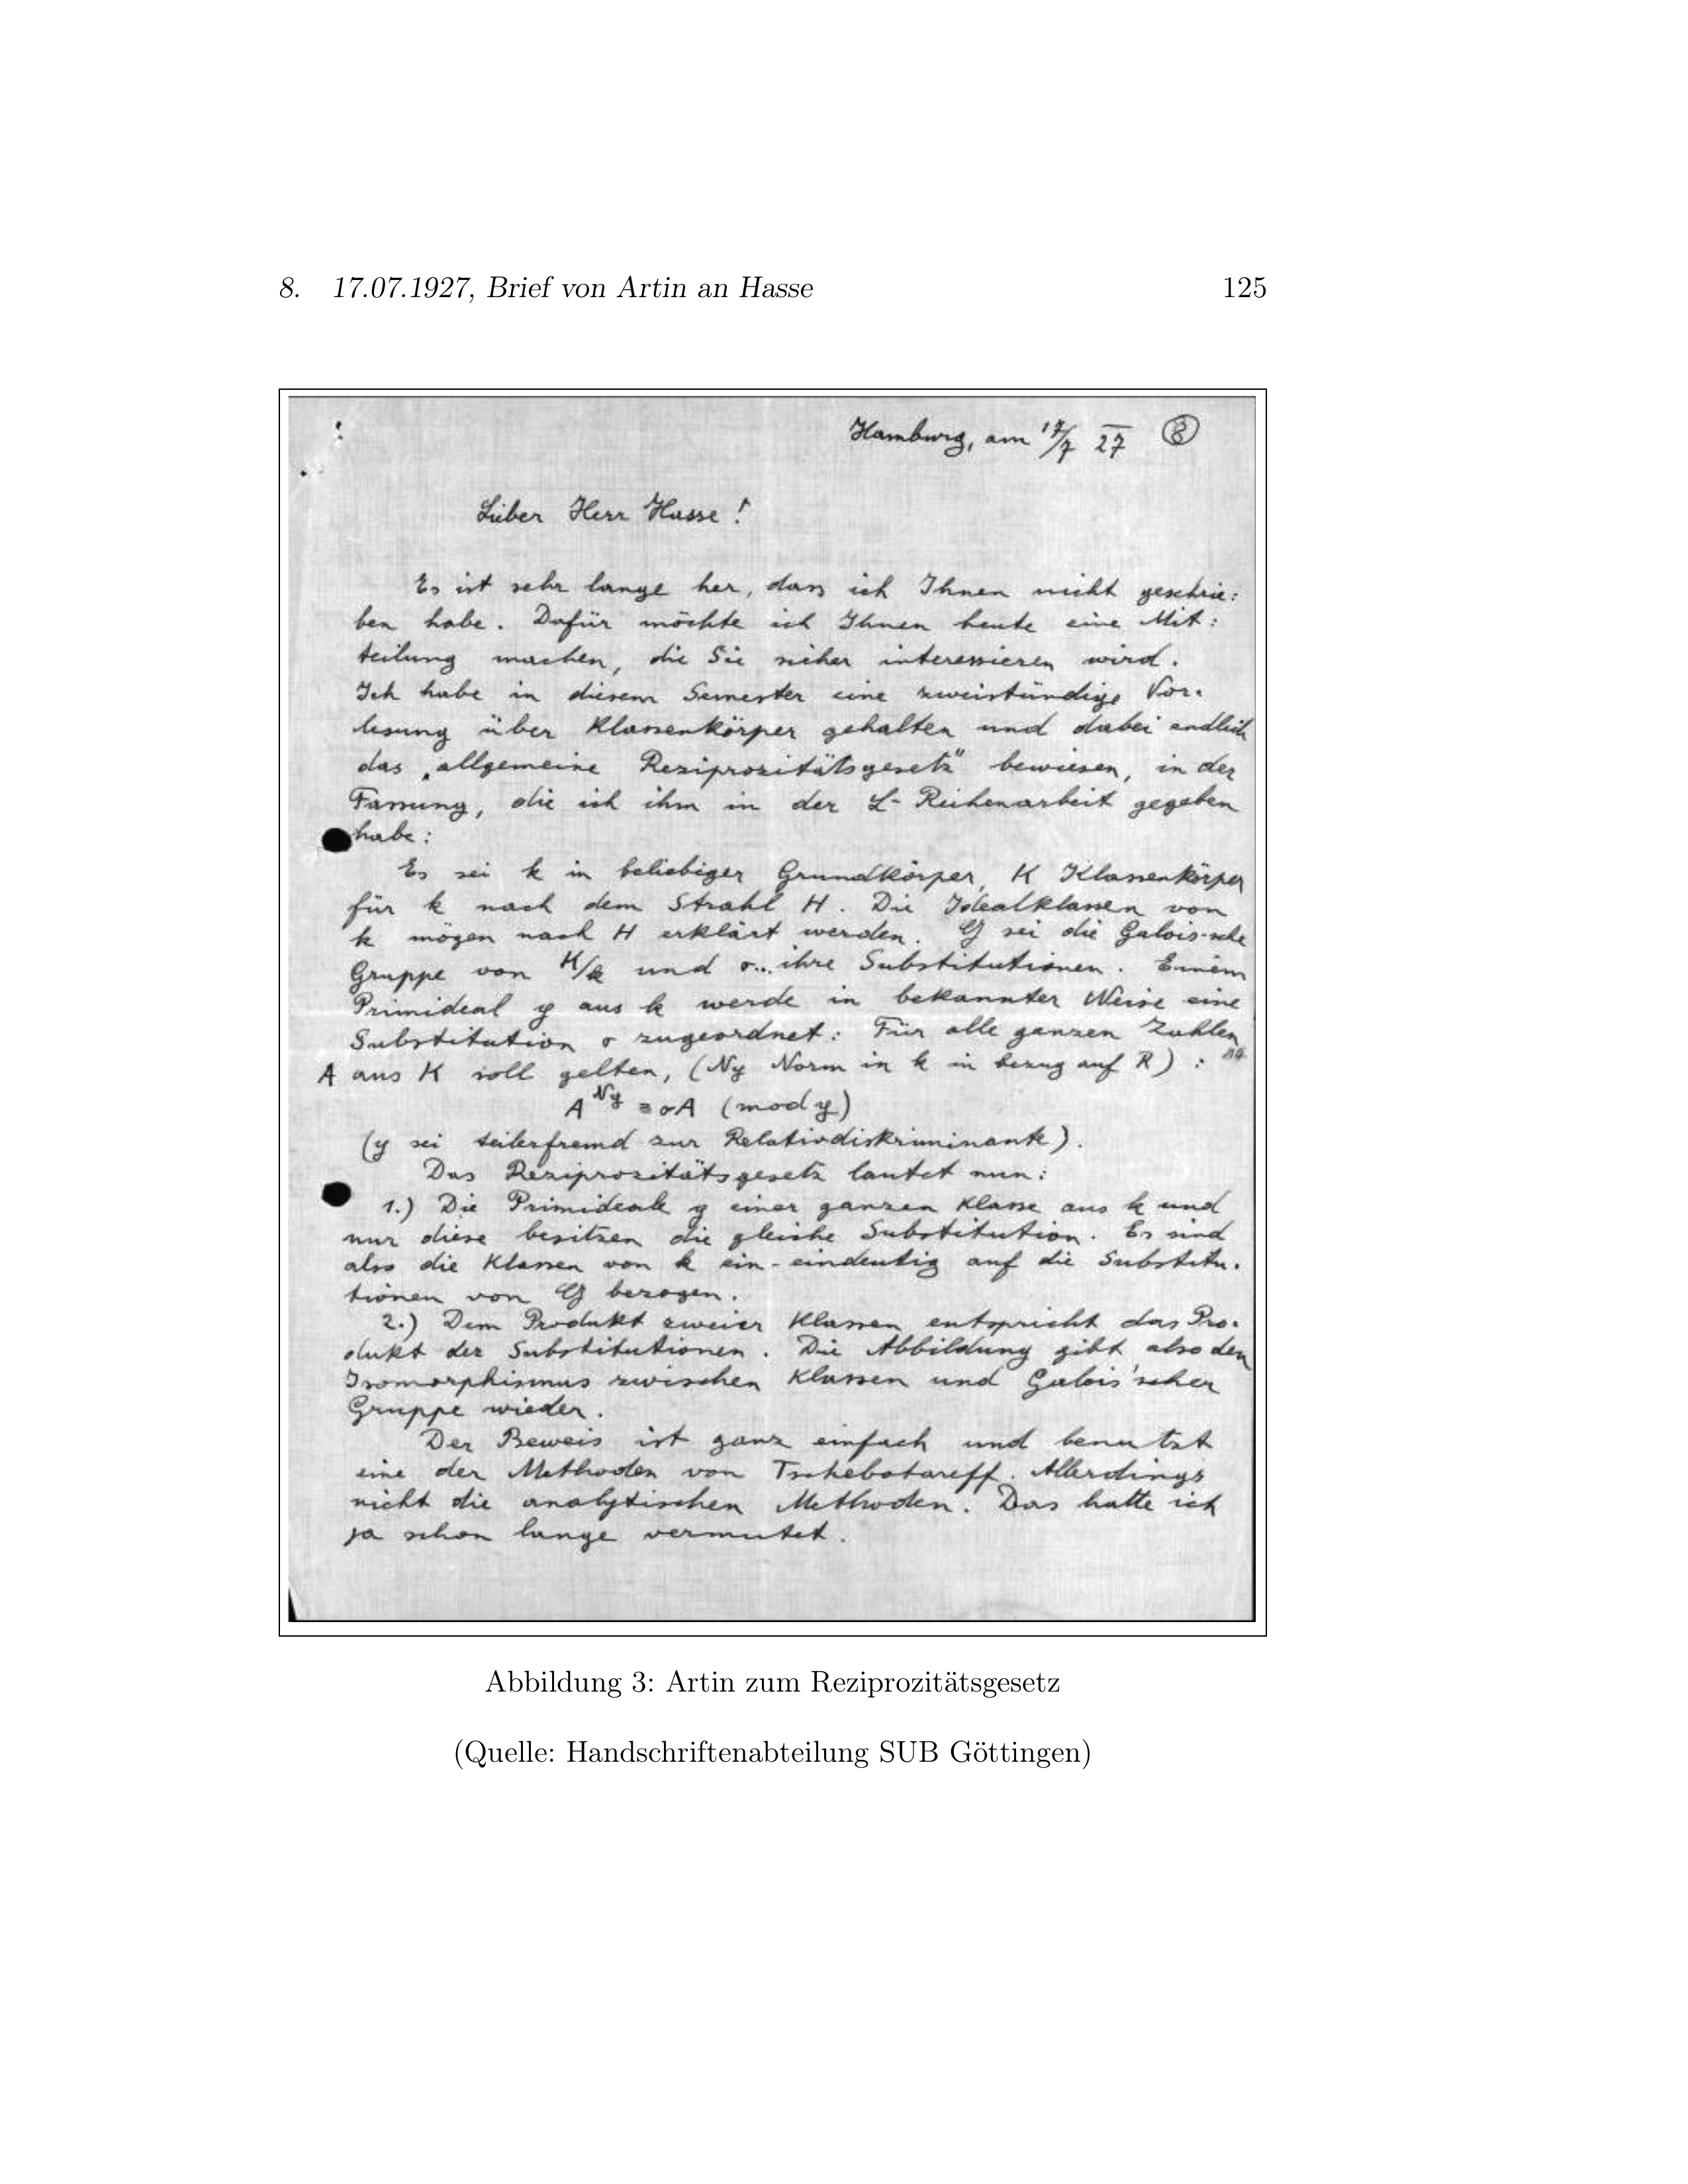 8. 17.07.1927, Brief von Artin an Hasse 125
Hamburg, am 17/7 27 8
Lieber Herr Hasse!
Es ist sehr lange her, dass ich Ihnen nicht geschrie:
ben habe. Dafür möchte ich Ihnen heute eine Mit:
teilung machen, die Sie sicher interessieren wird.
Ich habe in diesem Semester eine zweistündige Vor-
lesung über Klassenkörper gehalten und dabei endlich
das „allgemeine Reziprozitätsgesetz" bewiesen, in der
Fassung, die ich ihm in der L-Reihenarbeit gegeben
habe:
Es sei k in beliebiger Grundkörper, K Klassenkörper
für k nach dem Strahl H. Die Idealklassen von
k mögen nach H erklärt werden. G sei die Galois-sche
Gruppe von K/k und σ... ihre Substitutionen. Einem
Primideal y aus k werde in bekannter Weise eine
Substitution σ zugeordnet: Für alle ganzen Zahlen
A aus K soll gelten, (Ny Norm in k in bezug auf R):
A^Ny ≡ σA (mod y)
(y sei teilerfremd zur Relativdiskriminante).
Das Reziprozitätsgesetz lautet nun:
1.) Die Primideale y einer ganzen Klasse aus k und
nur diese besitzen die gleiche Substitution. Es sind
also die Klassen von k ein-eindeutig auf die Substitu-
tionen von G bezogen.
2.) Dem Produkt zweier Klassen entspricht das Pro-
dukt der Substitutionen. Die Abbildung gibt also den
Isomorphismus zwischen Klassen und Galois'scher
Gruppe wieder.
Der Beweis ist ganz einfach und benutzt
eine der Methoden von Tschebotareff. Allerdings
nicht die analytischen Methoden. Das hatte ich
ja schon lange vermutet.
Abbildung 3: Artin zum Reziprozitätsgesetz
(Quelle: Handschriftenabteilung SUB Göttingen)